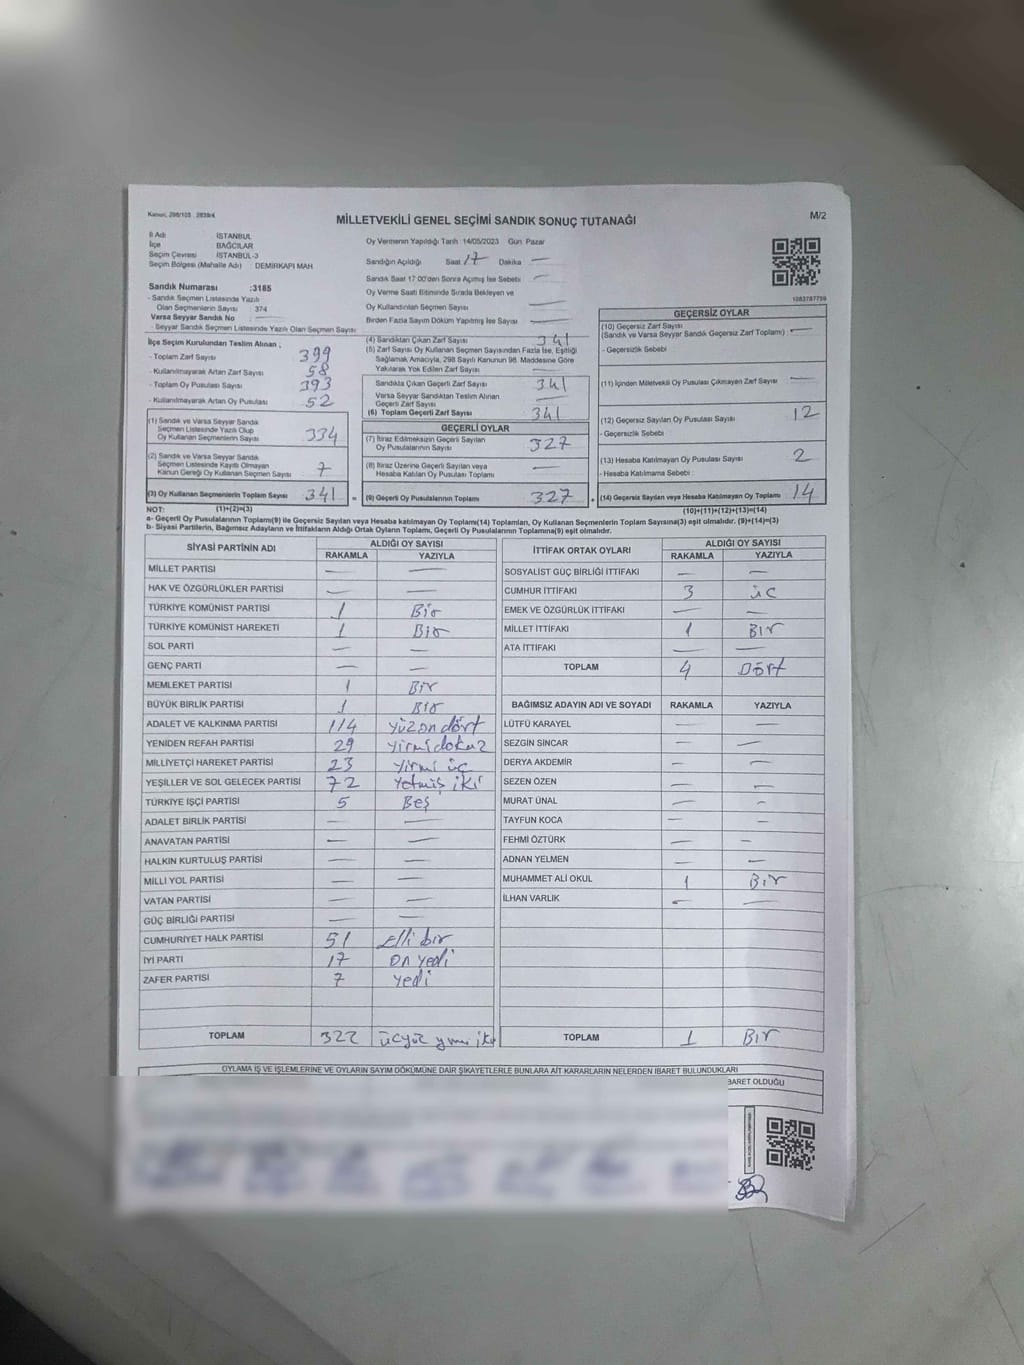 Kanun, 298/105 , 2839/4
MİLLETVEKİLİ GENEL SEÇİMİ SANDIK SONUÇ TUTANAĞI
M/2
İl Adı İSTANBUL
İlçe BAĞCILAR
Seçim Çevresi İSTANBUL-3
Seçim Bölgesi (Mahalle Adı) DEMİRKAPI MAH
Oy Vermenin Yapıldığı Tarih 14/05/2023 Gün Pazar
Sandığın Açıldığı Saat 17 Dakika —
Sandık Saat 17:00'den Sonra Açımış İse Sebebi : —
Oy Verme Saati Bitiminde Sırada Bekleyen ve
Oy Kullandırılan Seçmen Sayısı —
Birden Fazla Sayım Döküm Yapılmış İse Sayısı —
Sandık Numarası :3185
- Sandık Seçmen Listesinde Yazılı
Olan Seçmenlerin Sayısı 374
Varsa Seyyar Sandık No —
- Seyyar Sandık Seçmen Listesinde Yazılı Olan Seçmen Sayısı —
İlçe Seçim Kurulundan Teslim Alınan ;
- Toplam Zarf Sayısı 399
- Kullanılmayarak Artan Zarf Sayısı 58
- Toplam Oy Pusulası Sayısı 393
- Kullanılmayarak Artan Oy Pusulası 52
(1) Sandık ve Varsa Seyyar Sandık
Seçmen Listesinde Yazılı Olup
Oy Kullanan Seçmenlerin Sayısı 334
(2) Sandık ve Varsa Seyyar Sandık
Seçmen Listesinde Kayıtlı Olmayan
Kanun Gereği Oy Kullanan Seçmen Sayısı 7
(3) Oy Kullanan Seçmenlerin Toplam Sayısı 341 =
(4) Sandıktan Çıkan Zarf Sayısı 341
(5) Zarf Sayısı Oy Kullanan Seçmen Sayısından Fazla İse, Eşitliği
Sağlamak Amacıyla, 298 Sayılı Kanunun 98. Maddesine Göre
Yakılarak Yok Edilen Zarf Sayısı —
Sandıkta Çıkan Geçerli Zarf Sayısı 341
Varsa Seyyar Sandıktan Teslim Alınan
Geçerli Zarf Sayısı —
(6) Toplam Geçerli Zarf Sayısı 341
GEÇERLİ OYLAR
(7) İtiraz Edilmeksizin Geçerli Sayılan
Oy Pusulalarının Sayısı 327
(8) İtiraz Üzerine Geçerli Sayılan veya
Hesaba Katılan Oy Pusulası Sayısı —
(9) Geçerli Oy Pusulalarının Toplamı 327 +
1083787759
GEÇERSİZ OYLAR
(10) Geçersiz Zarf Sayısı
(Sandık ve Varsa Seyyar Sandık Geçersiz Zarf Toplamı) : —
- Geçersizlik Sebebi
(11) İçinden Milletvekili Oy Pusulası Çıkmayan Zarf Sayısı —
(12) Geçersiz Sayılan Oy Pusulası Sayısı 12
- Geçersizlik Sebebi
(13) Hesaba Katılmayan Oy Pusulası Sayısı 2
- Hesaba Katılmama Sebebi :
(14) Geçersiz Sayılan veya Hesaba Katılmayan Oy Toplamı 14
NOT: (1)+(2)=(3) (10)+(11)+(12)+(13)=(14)
a- Geçerli Oy Pusulalarının Toplamı(9) ile Geçersiz Sayılan veya Hesaba katılmayan Oy Toplamı(14) Toplamları, Oy Kullanan Seçmenlerin Toplam Sayısına(3) eşit olmalıdır. (9)+(14)=(3)
b- Siyasi Partilerin, Bağımsız Adayların ve İttifakların Aldığı Ortak Oyların Toplamı, Geçerli Oy Pusulalarının Toplamına(9) eşit olmalıdır.
SİYASİ PARTİNİN ADI ALDIĞI OY SAYISI
RAKAMLA YAZIYLA
MİLLET PARTİSİ — —
HAK VE ÖZGÜRLÜKLER PARTİSİ — —
TÜRKİYE KOMÜNİST PARTİSİ 1 Bir
TÜRKİYE KOMÜNİST HAREKETİ 1 Bir
SOL PARTİ — —
GENÇ PARTİ — —
MEMLEKET PARTİSİ 1 Bir
BÜYÜK BİRLİK PARTİSİ 1 Bir
ADALET VE KALKINMA PARTİSİ 114 yüzon dört
YENİDEN REFAH PARTİSİ 29 yirmi dokuz
MİLLİYETÇİ HAREKET PARTİSİ 23 yirmi üç
YEŞİLLER VE SOL GELECEK PARTİSİ 72 yetmiş iki
TÜRKİYE İŞÇİ PARTİSİ 5 Beş
ADALET BİRLİK PARTİSİ — —
ANAVATAN PARTİSİ — —
HALKIN KURTULUŞ PARTİSİ — —
MİLLİ YOL PARTİSİ — —
VATAN PARTİSİ — —
GÜÇ BİRLİĞİ PARTİSİ — —
CUMHURİYET HALK PARTİSİ 51 Elli bir
İYİ PARTİ 17 on yedi
ZAFER PARTİSİ 7 yedi
TOPLAM 322 üçyüz yirmi iki
İTTİFAK ORTAK OYLARI ALDIĞI OY SAYISI
RAKAMLA YAZIYLA
SOSYALİST GÜÇ BİRLİĞİ İTTİFAKI — —
CUMHUR İTTİFAKI 3 üç
EMEK VE ÖZGÜRLÜK İTTİFAKI — —
MİLLET İTTİFAKI 1 Bir
ATA İTTİFAKI — —
TOPLAM 4 Dört
BAĞIMSIZ ADAYIN ADI VE SOYADI RAKAMLA YAZIYLA
LÜTFÜ KARAYEL — —
SEZGİN SİNCAR — —
DERYA AKDEMİR — —
SEZEN ÖZEN — —
MURAT ÜNAL — —
TAYFUN KOCA — —
FEHMİ ÖZTÜRK — —
ADNAN YELMEN — —
MUHAMMET ALİ OKUL 1 Bir
İLHAN VARLIK — —
TOPLAM 1 Bir
OYLAMA İŞ VE İŞLEMLERİNE VE OYLARIN SAYIM DÖKÜMÜNE DAİR ŞİKAYETLERLE BUNLARA AİT KARARLARIN NELERDEN İBARET BULUNDUKLARI
BARET OLDUĞU